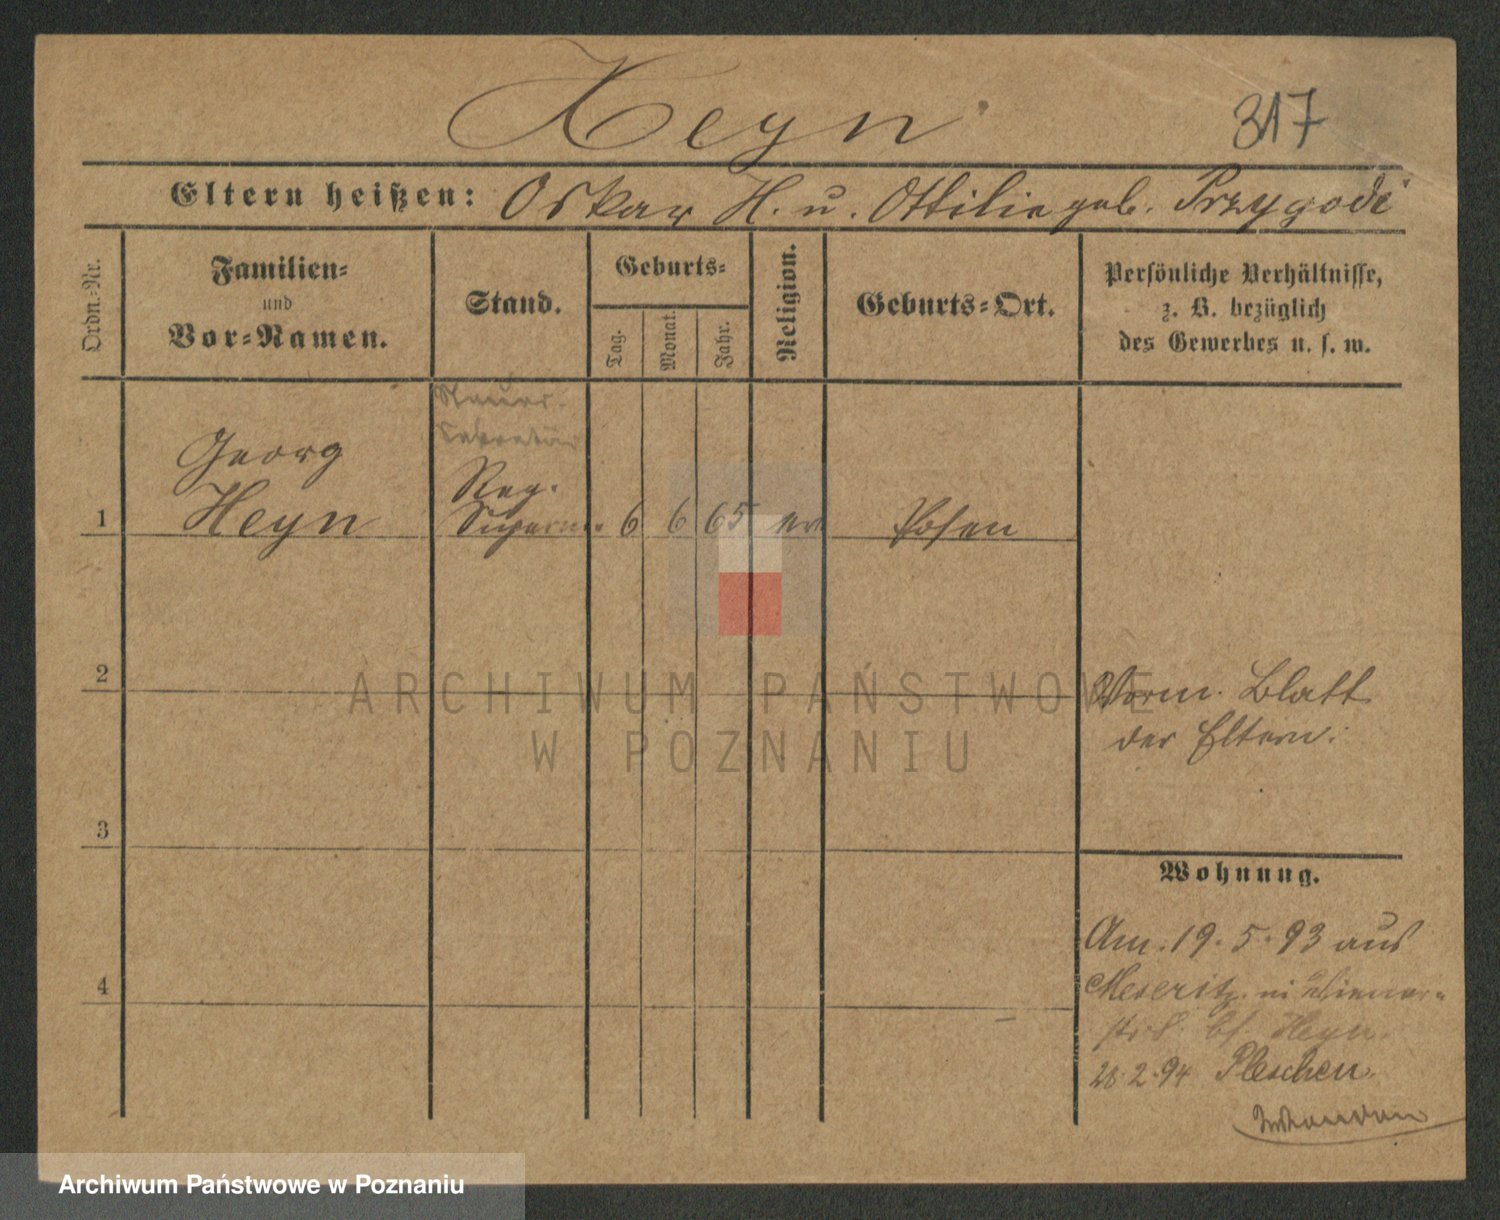 Heyn
317
Eltern heißen: Oskar H. u. Ottilie geb. Przygode
Ordn.-Nr.
Familien-
und
Vor-Namen.
Stand.
Geburts-
Tag.
Monat.
Jahr.
Religion.
Geburts-Ort.
Persönliche Verhältnisse,
z. B. bezüglich
des Gewerbes u. s. w.
Sekretär
Georg
Reg.
1 Heyn Supern. 6 6 65 ev Posen
2
Vorm. Blatt
der Eltern.
3
Wohnung.
Am. 19. 5. 93 aus
4
Meseritz
bs. Heyn.
28. 2. 94 Pleschen.
ARCHIWUM PAŃSTWOWE
W POZNANIU
Archiwum Państwowe w Poznaniu